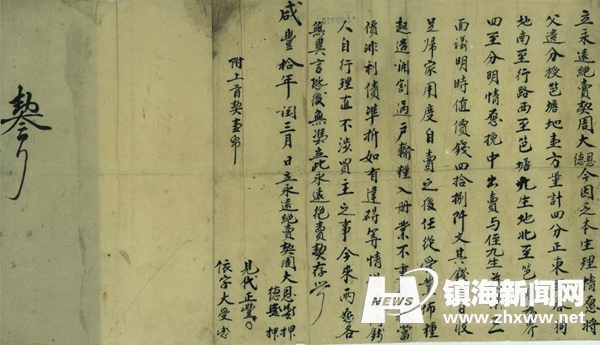 立永遠絕賣契周大德恩今因乏本生理情愿將
父遺分授笆塘地壹方量計四分正東
地南至行路西至笆塘九生地北至笆
四至分明情愿挽中出賣與侄九生三
面議明時值價錢四拾捌阡文其錢收
足歸家用度自賣之後任從受業佈種
起造開割過戶輸糧入册業不重蓄
債非利債準折如有違碍等情錢
人自行理直不涉買主之事今來兩愿各
無異言恐後無憑立此永遠絕賣契存
咸豐拾年閏三月 日立永遠絕賣契周大恩押
德押
附上首契壹帋
見代正
依字大受
契
镇海新闻网
www.zhxww.net